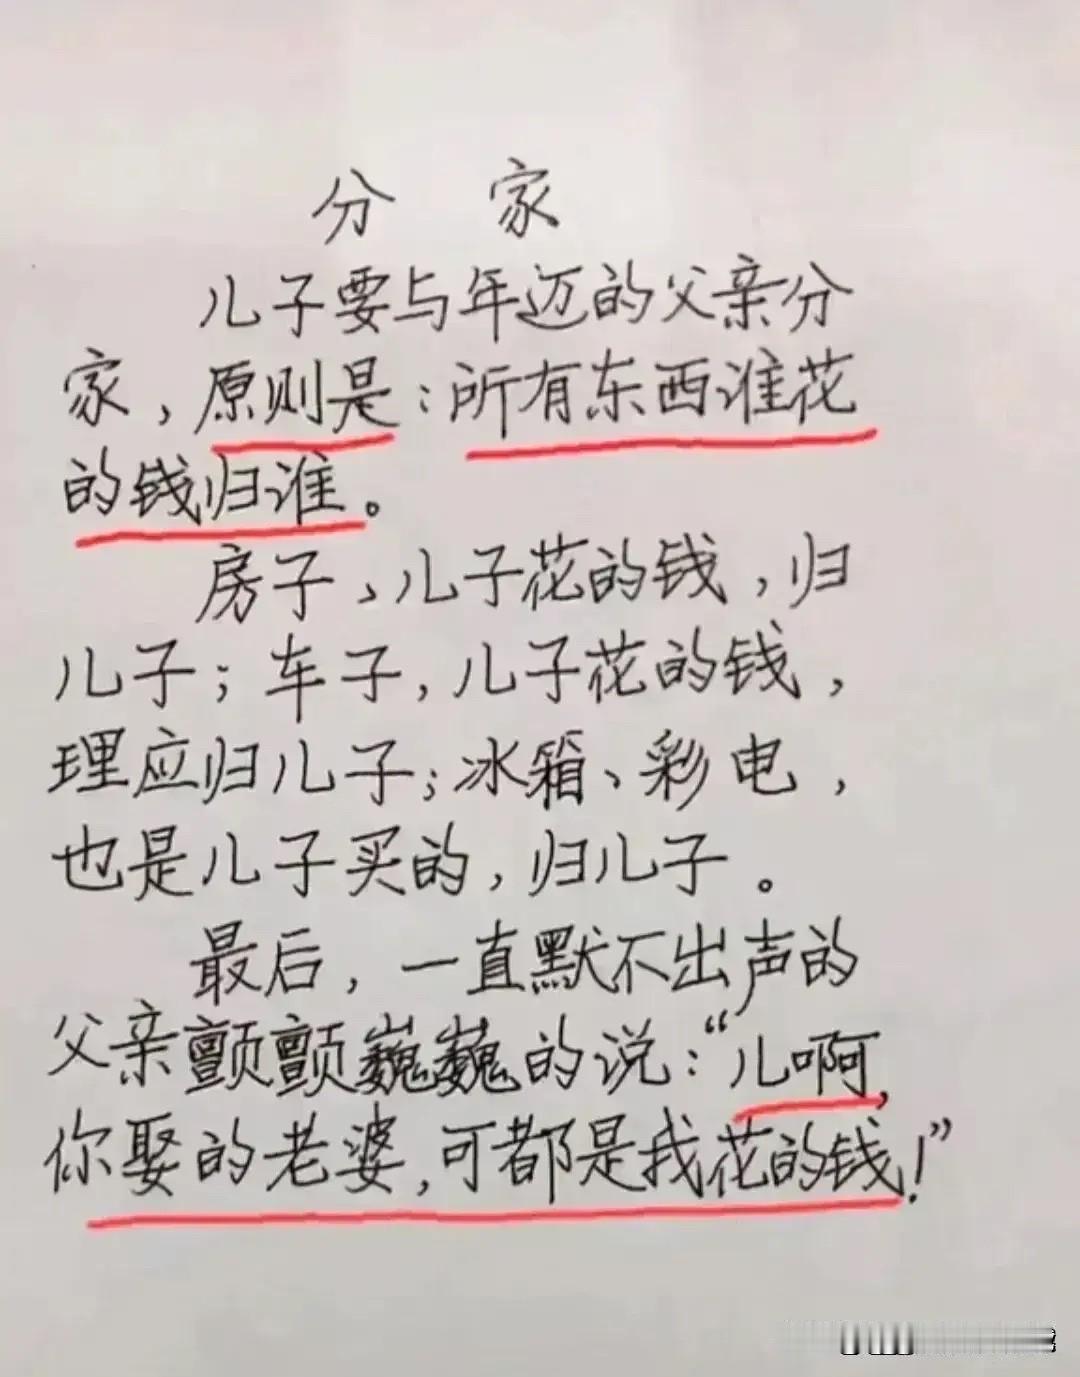 分 家
儿子要与年迈的父亲分
家，原则是：所有东西谁花
的钱归谁。
房子、儿子花的钱，归
儿子；车子，儿子花的钱，
理应归儿子；冰箱、彩电，
也是儿子买的，归儿子。
最后，一直默不出声的
父亲颤颤巍巍的说：“儿啊，
你娶的老婆，可都是我花的钱！”